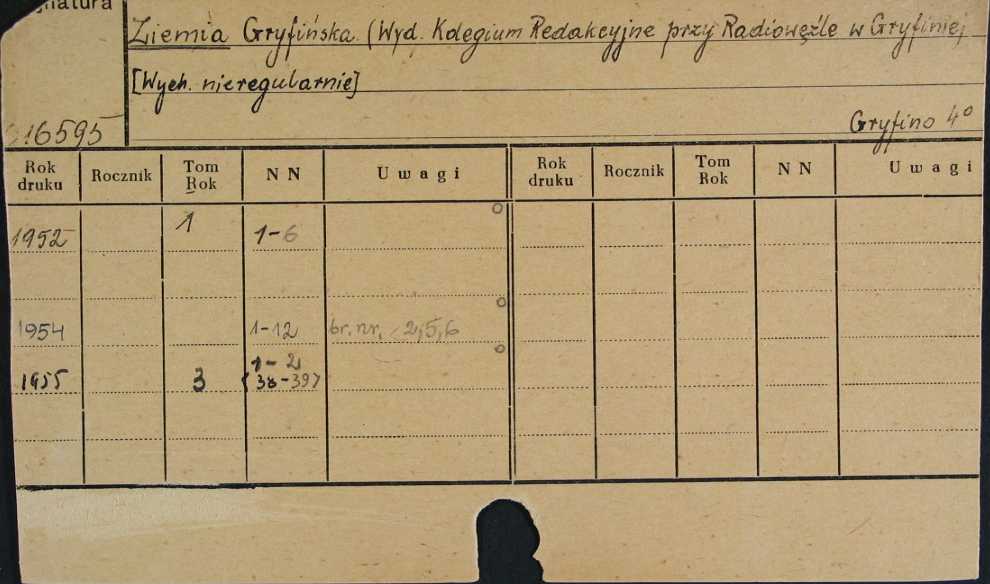 natura
Ziemia Gryfińska. (Wyd. Kolegium Redakcyjne przy Radiowęźle w Gryfinie)
[Wych. nieregularnie]
16595
Gryfino 4°
Rok druku Rocznik Tom Rok N N Uwagi Rok druku Rocznik Tom Rok N N Uwagi
1952 1 1-6
1954 1-12 br. nr. 2,5,6
1955 3 1-2
(38-39)